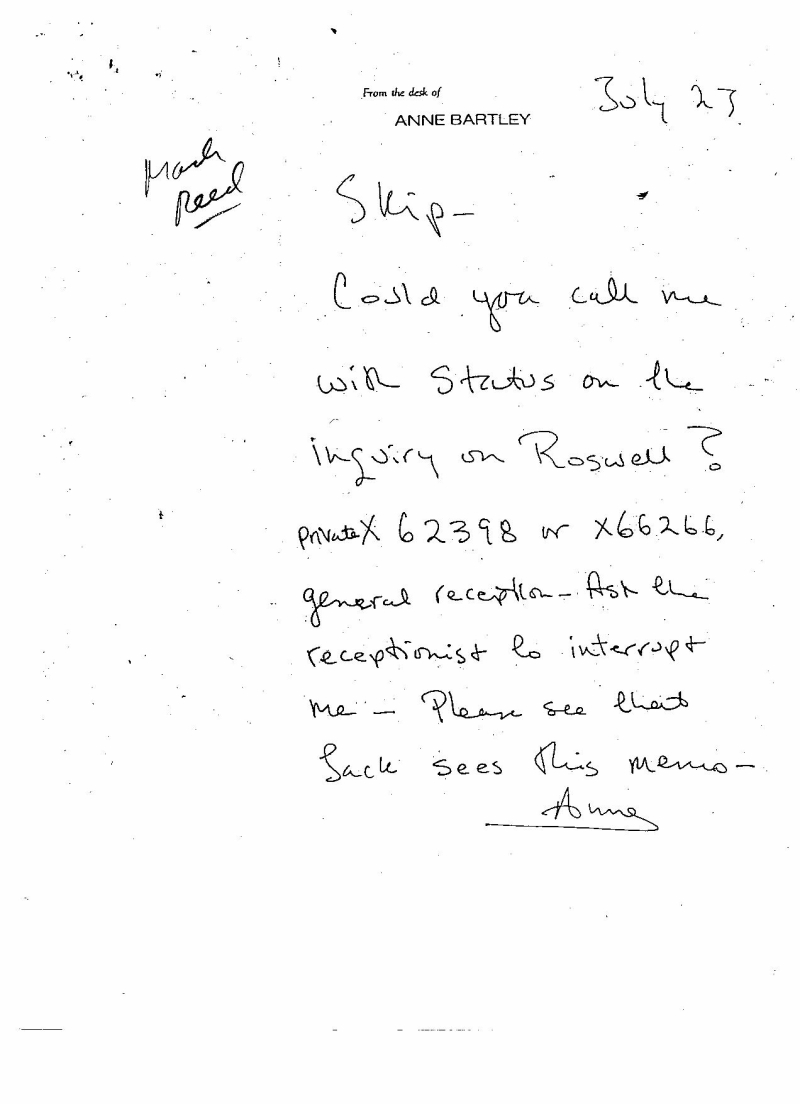 From the desk of
ANNE BARTLEY
July 23
Mark
Reed
Skip-
Could you call me
with Status on the
inquiry on Roswell?
private X 62398 or X66266,
general reception - Ask the
receptionist to interrupt
me - Please see that
Jack sees this memo-
Anne